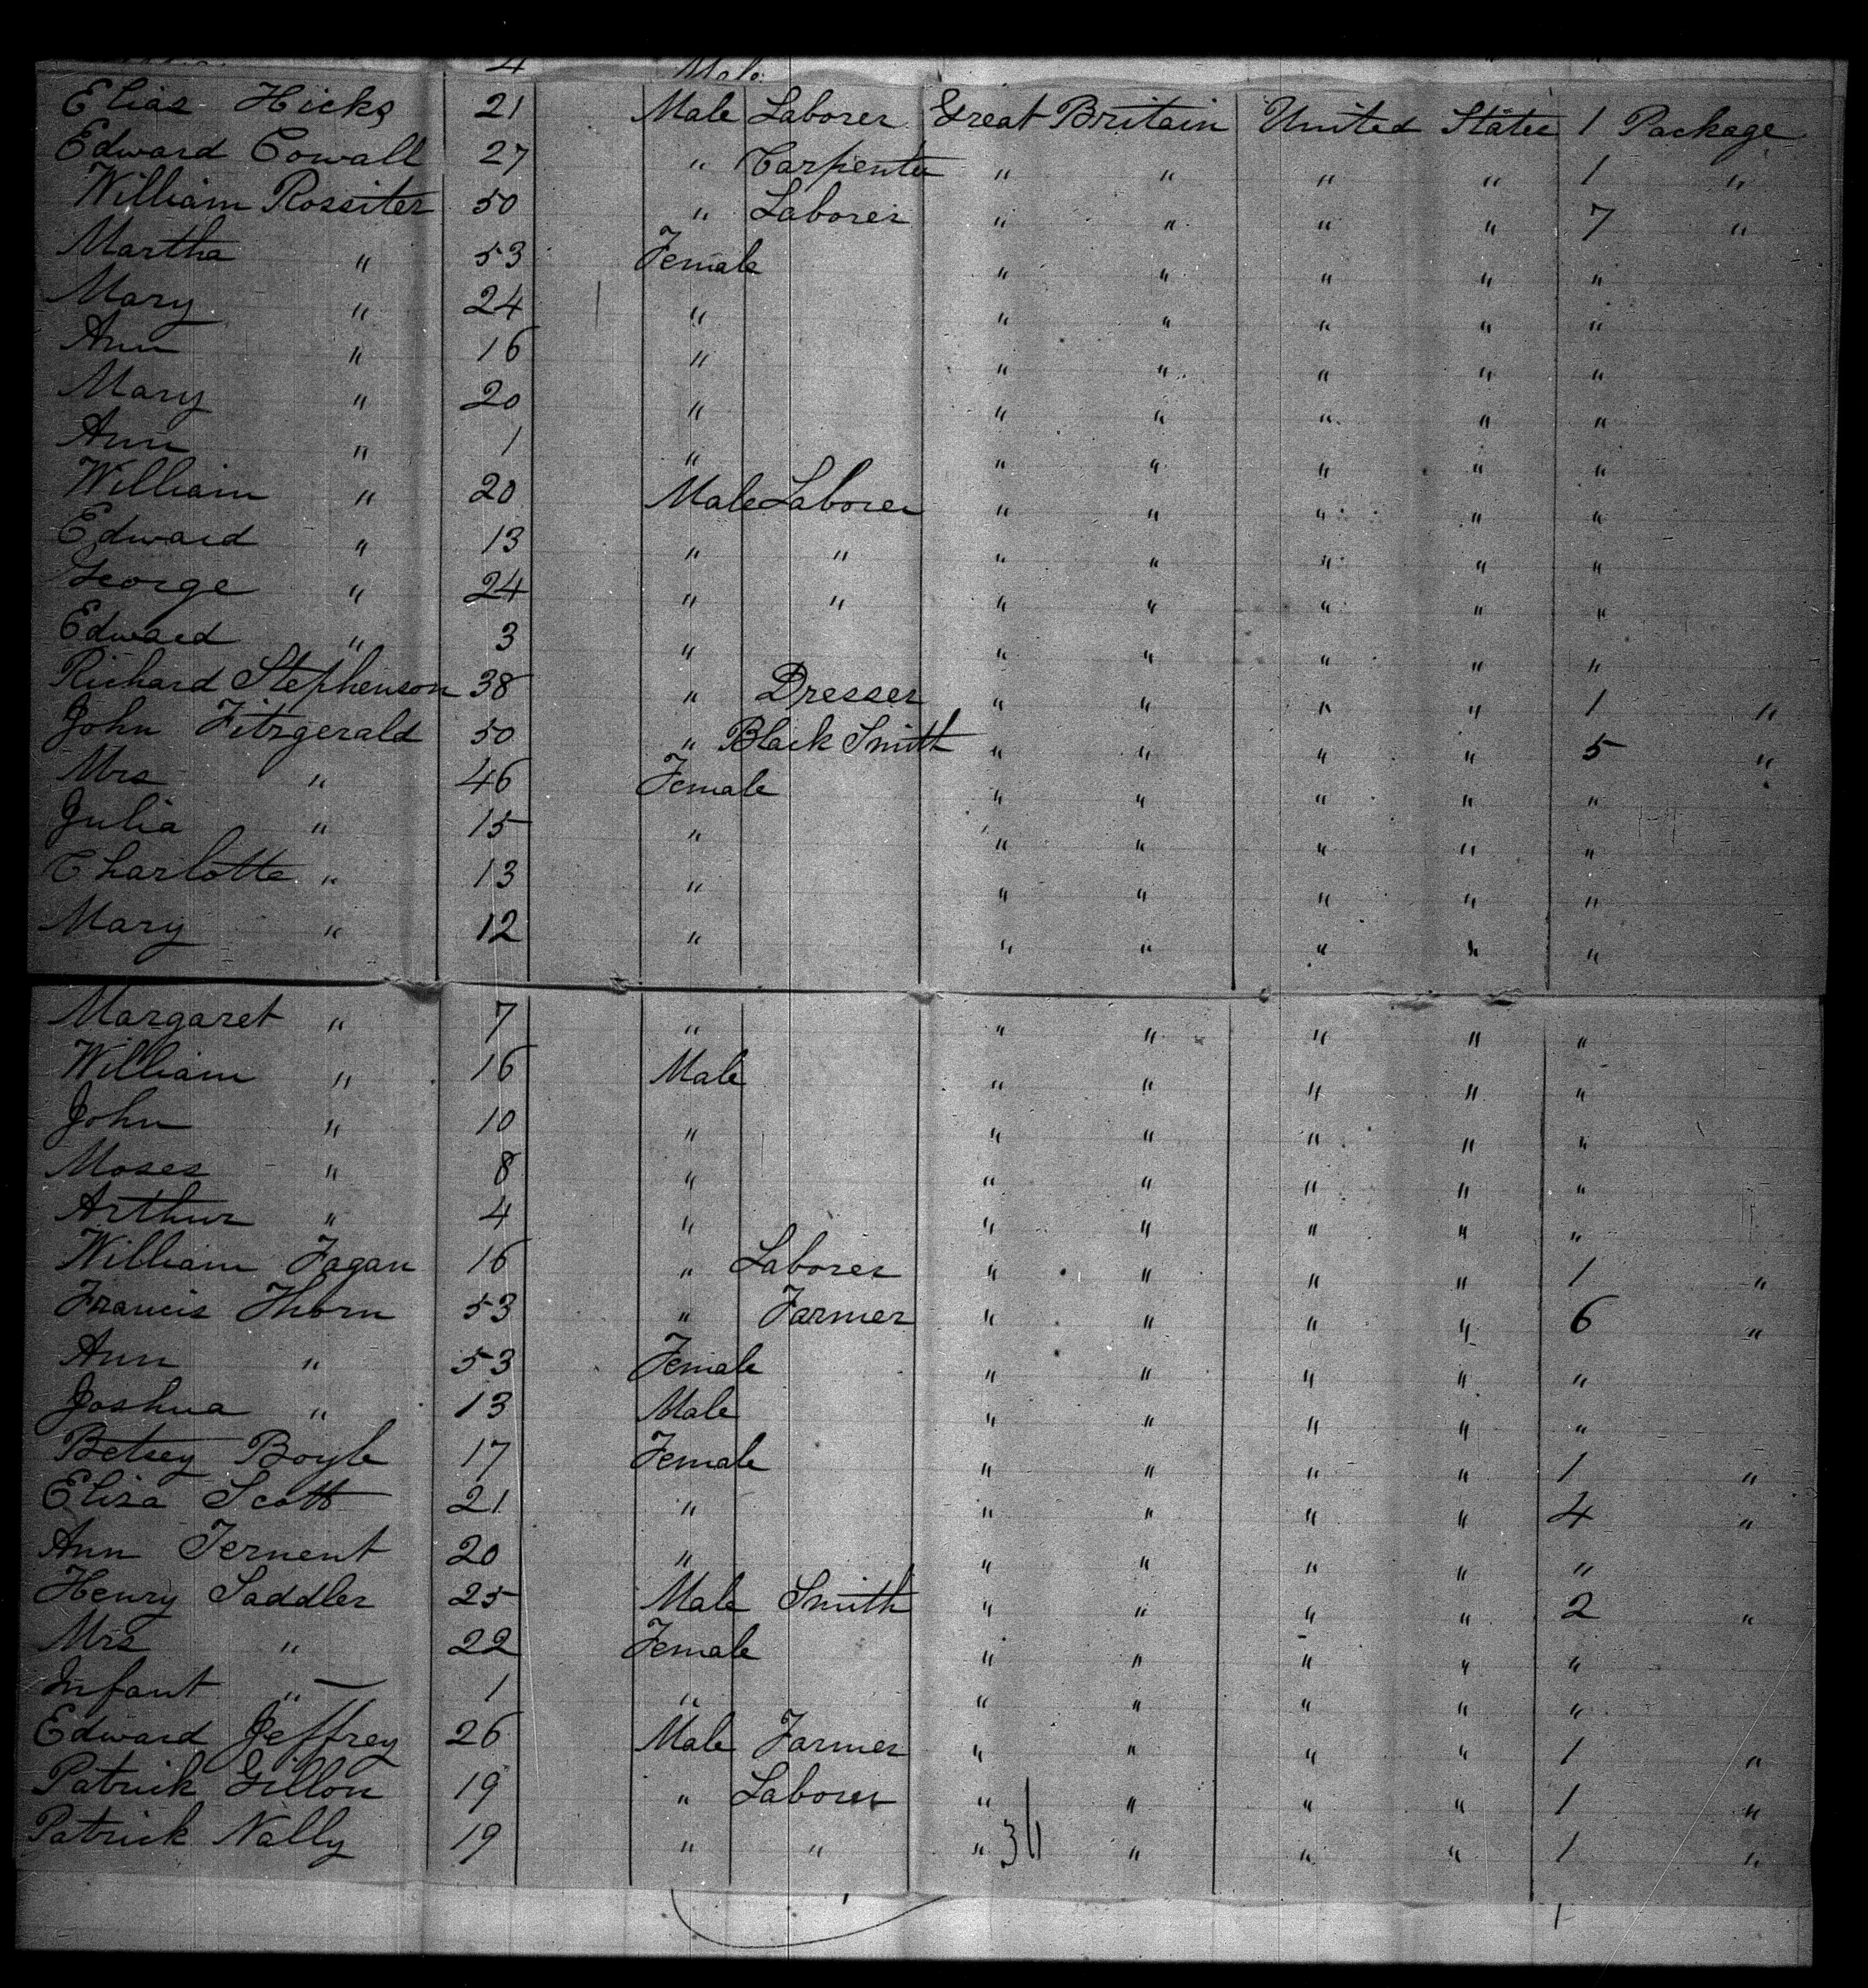 4 Male
Elias Hicks 21 Male Laborer Great Britain United States 1 Package
Edward Cowall 27 " Carpenter " " " " 1 "
William Rossiter 50 " Laborer " " " " 7 "
Martha " 53 Female " " " " "
Mary " 24 " " " " " "
Ann " 16 " " " " " "
Mary " 20 " " " " " "
Ann " 1 " " " " " "
William " 20 Male Laborer " " " " "
Edward " 13 " " " " " " "
George " 24 " " " " " " "
Edward " 3 " " " " " "
Richard Stephenson 38 " Dresser " " " " 1 "
John Fitzgerald 50 " Black Smith " " " " 5 "
Mrs " 46 Female " " " " "
Julia " 15 " " " " " "
Charlotte " 13 " " " " " "
Mary " 12 " " " " " "
Margaret " 7 " " " " " "
William " 16 Male " " " " "
John " 10 " " " " " "
Moses " 8 " " " " " "
Arthur " 4 " " " " " "
William Fagan 16 " Laborer " " " " 1 "
Francis Thorn 53 " Farmer " " " " 6 "
Ann " 53 Female " " " " "
Joshua " 13 Male " " " " "
Betsey Boyle 17 Female " " " " 1 "
Eliza Scott 21 " " " " " 4 "
Ann Ternent 20 " " " " " "
Henry Saddler 25 Male Smith " " " " 2 "
Mrs " 22 Female " " " " "
Infant " — 1 " " " " " "
Edward Jeffrey 26 Male Farmer " " " " 1 "
Patrick Gillon 19 " Laborer " " " " 1 "
Patrick Nally 19 " " " 36 " " " 1 "